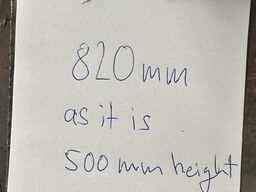 820mm
as it is
500 mm height